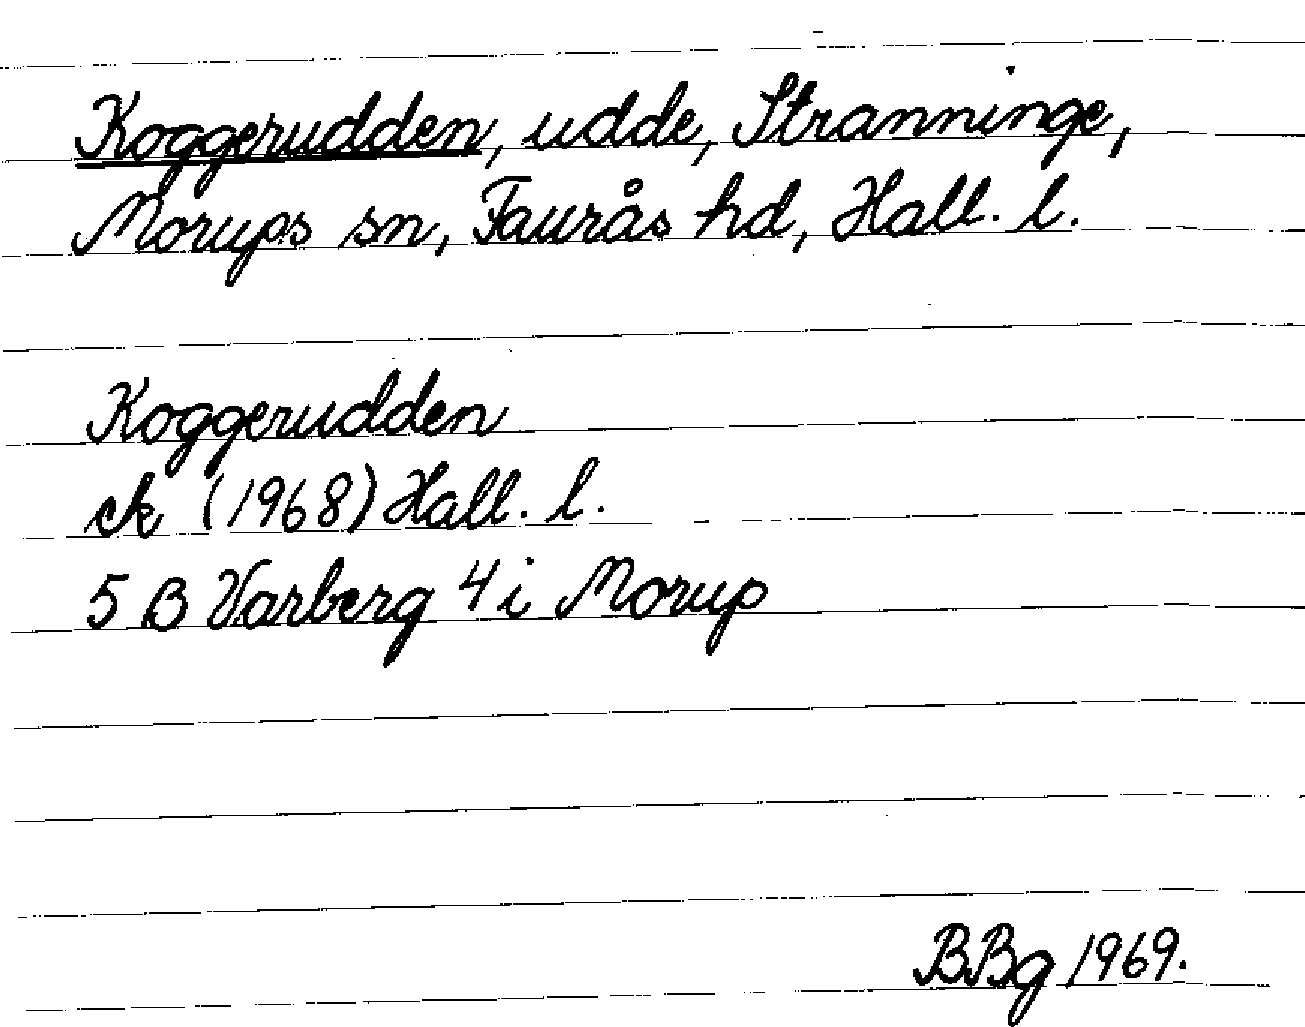 Koggerudden, udde, Stranninge,
Morups sn, Faurås hd, Hall. l.
Koggerudden
ek (1968) Hall. l.
5 B Varberg 4 i Morup
BBg 1969.